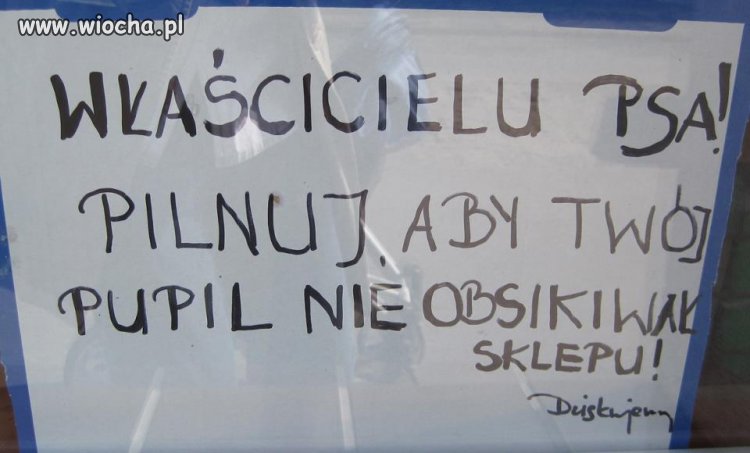 www.wiocha.pl
WŁAŚCICIELU PSA!
PILNUJ, ABY TWÓJ
PUPIL NIE OBSIKIWAŁ
SKLEPU!
Dziękujemy